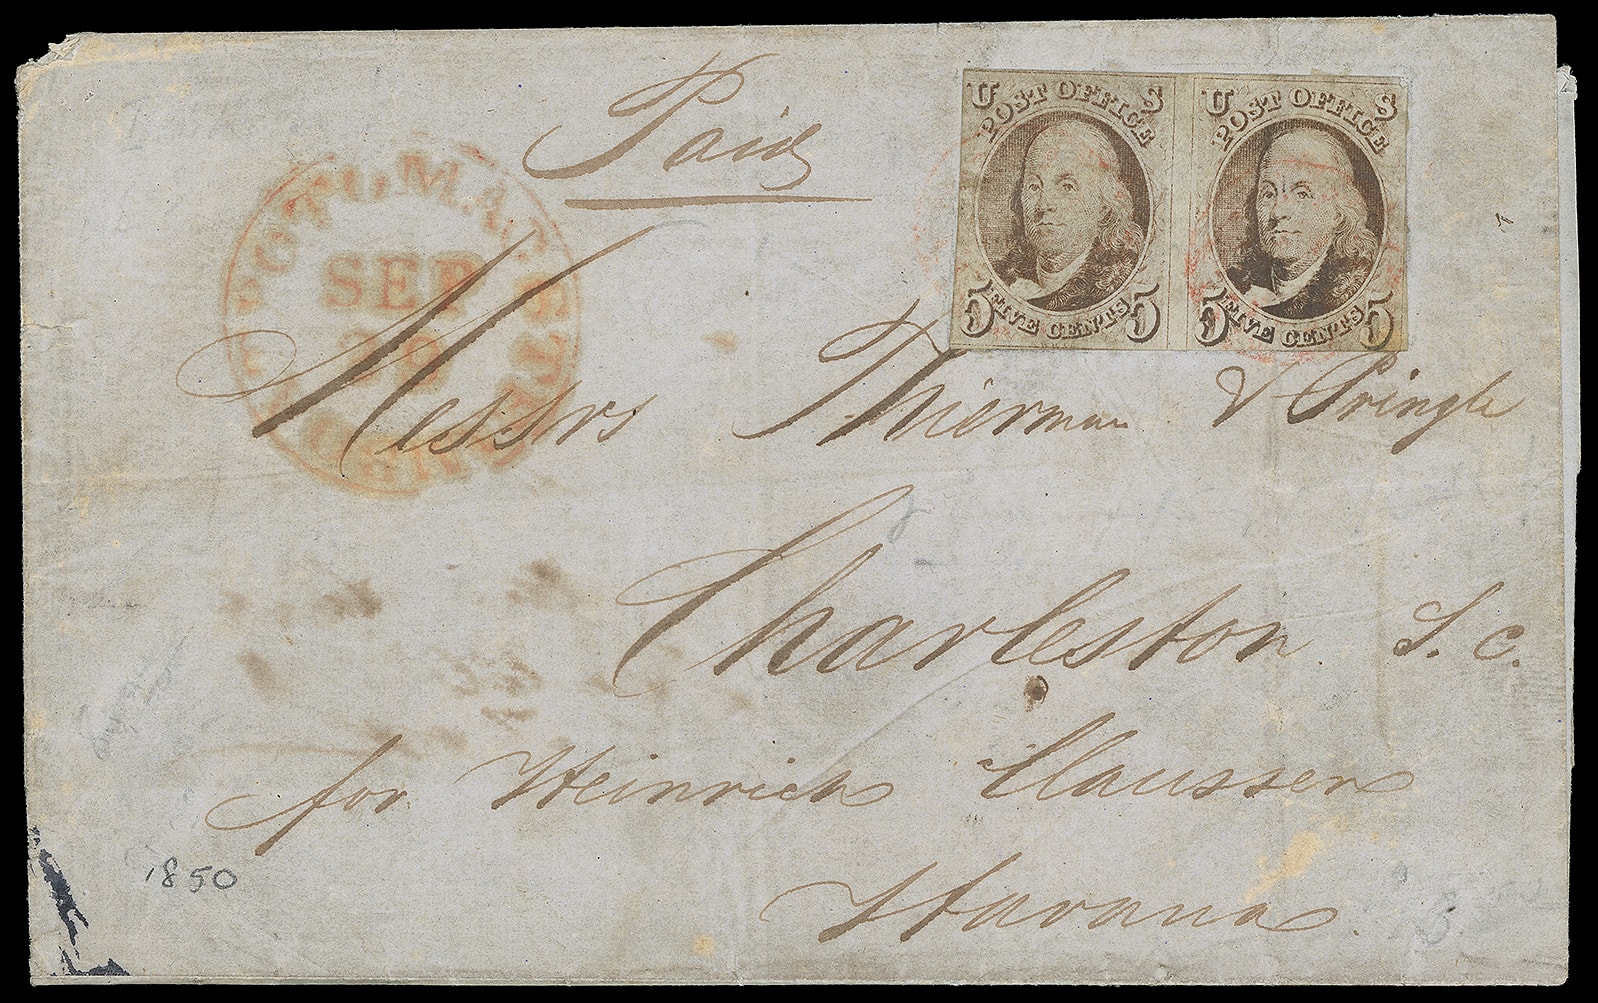 Paid
U S
POST OFFICE
FIVE CENTS
5 5
U S
POST OFFICE
FIVE CENTS
5 5
SEP
Messrs Thierman & Pringle
Charleston S. C.
for Heinrich Claussen
Havana.
1850